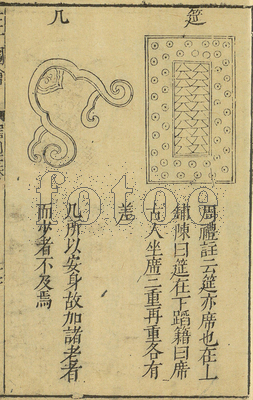 筵
周禮註云筵亦席也在上
鋪陳曰筵在下蹈籍曰席
古人坐席三重再重各有
差
几
几所以安身故加諸老者
而少者不及焉
fotoe